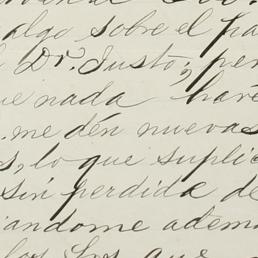 algo sobre el pa
Dr. Justo; per
ue nada haré
me dén nuevas
s, lo que suplic
sin perdida de
iandome adema
los Srs que